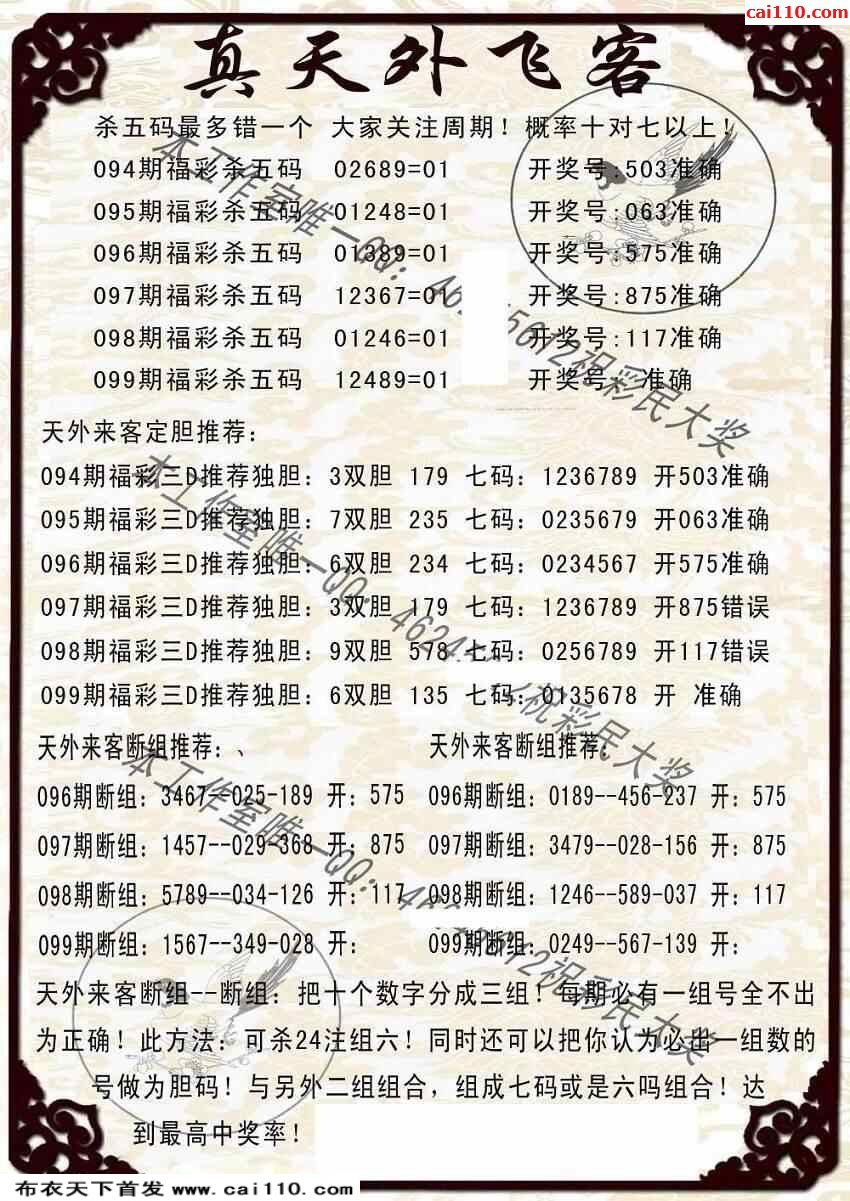 cai110.com
真天外飞客
杀五码最多错一个 大家关注周期！概率十对七以上！
094期福彩杀五码 02689=01 开奖号:503准确
095期福彩杀五码 01248=01 开奖号:063准确
096期福彩杀五码 01389=01 开奖号:575准确
097期福彩杀五码 12367=01 开奖号:875准确
098期福彩杀五码 01246=01 开奖号:117准确
099期福彩杀五码 12489=01 开奖号: 准确
天外来客定胆推荐：
094期福彩三D推荐独胆：3双胆 179 七码：1236789 开503准确
095期福彩三D推荐独胆：7双胆 235 七码：0235679 开063准确
096期福彩三D推荐独胆：6双胆 234 七码：0234567 开575准确
097期福彩三D推荐独胆：3双胆 179 七码：1236789 开875错误
098期福彩三D推荐独胆：9双胆 578 七码：0256789 开117错误
099期福彩三D推荐独胆：6双胆 135 七码：0135678 开 准确
天外来客断组推荐：、 天外来客断组推荐：
096期断组：3467--025-189 开：575 096期断组：0189--456-237 开：575
097期断组：1457--029-368 开：875 097期断组：3479--028-156 开：875
098期断组：5789--034-126 开：117 098期断组：1246--589-037 开：117
099期断组：1567--349-028 开： 099期断组：0249--567-139 开：
天外来客断组--断组：把十个数字分成三组！每期必有一组号全不出
为正确！此方法：可杀24注组六！同时还可以把你认为必出一组数的
号做为胆码！与另外二组组合，组成七码或是六吗组合！达
到最高中奖率！
本工作室唯一QQ：祝彩民大奖
本工作室唯一QQ：祝彩民大奖
本工作室唯一QQ：祝彩民大奖
布衣天下首发 www.cai110.com